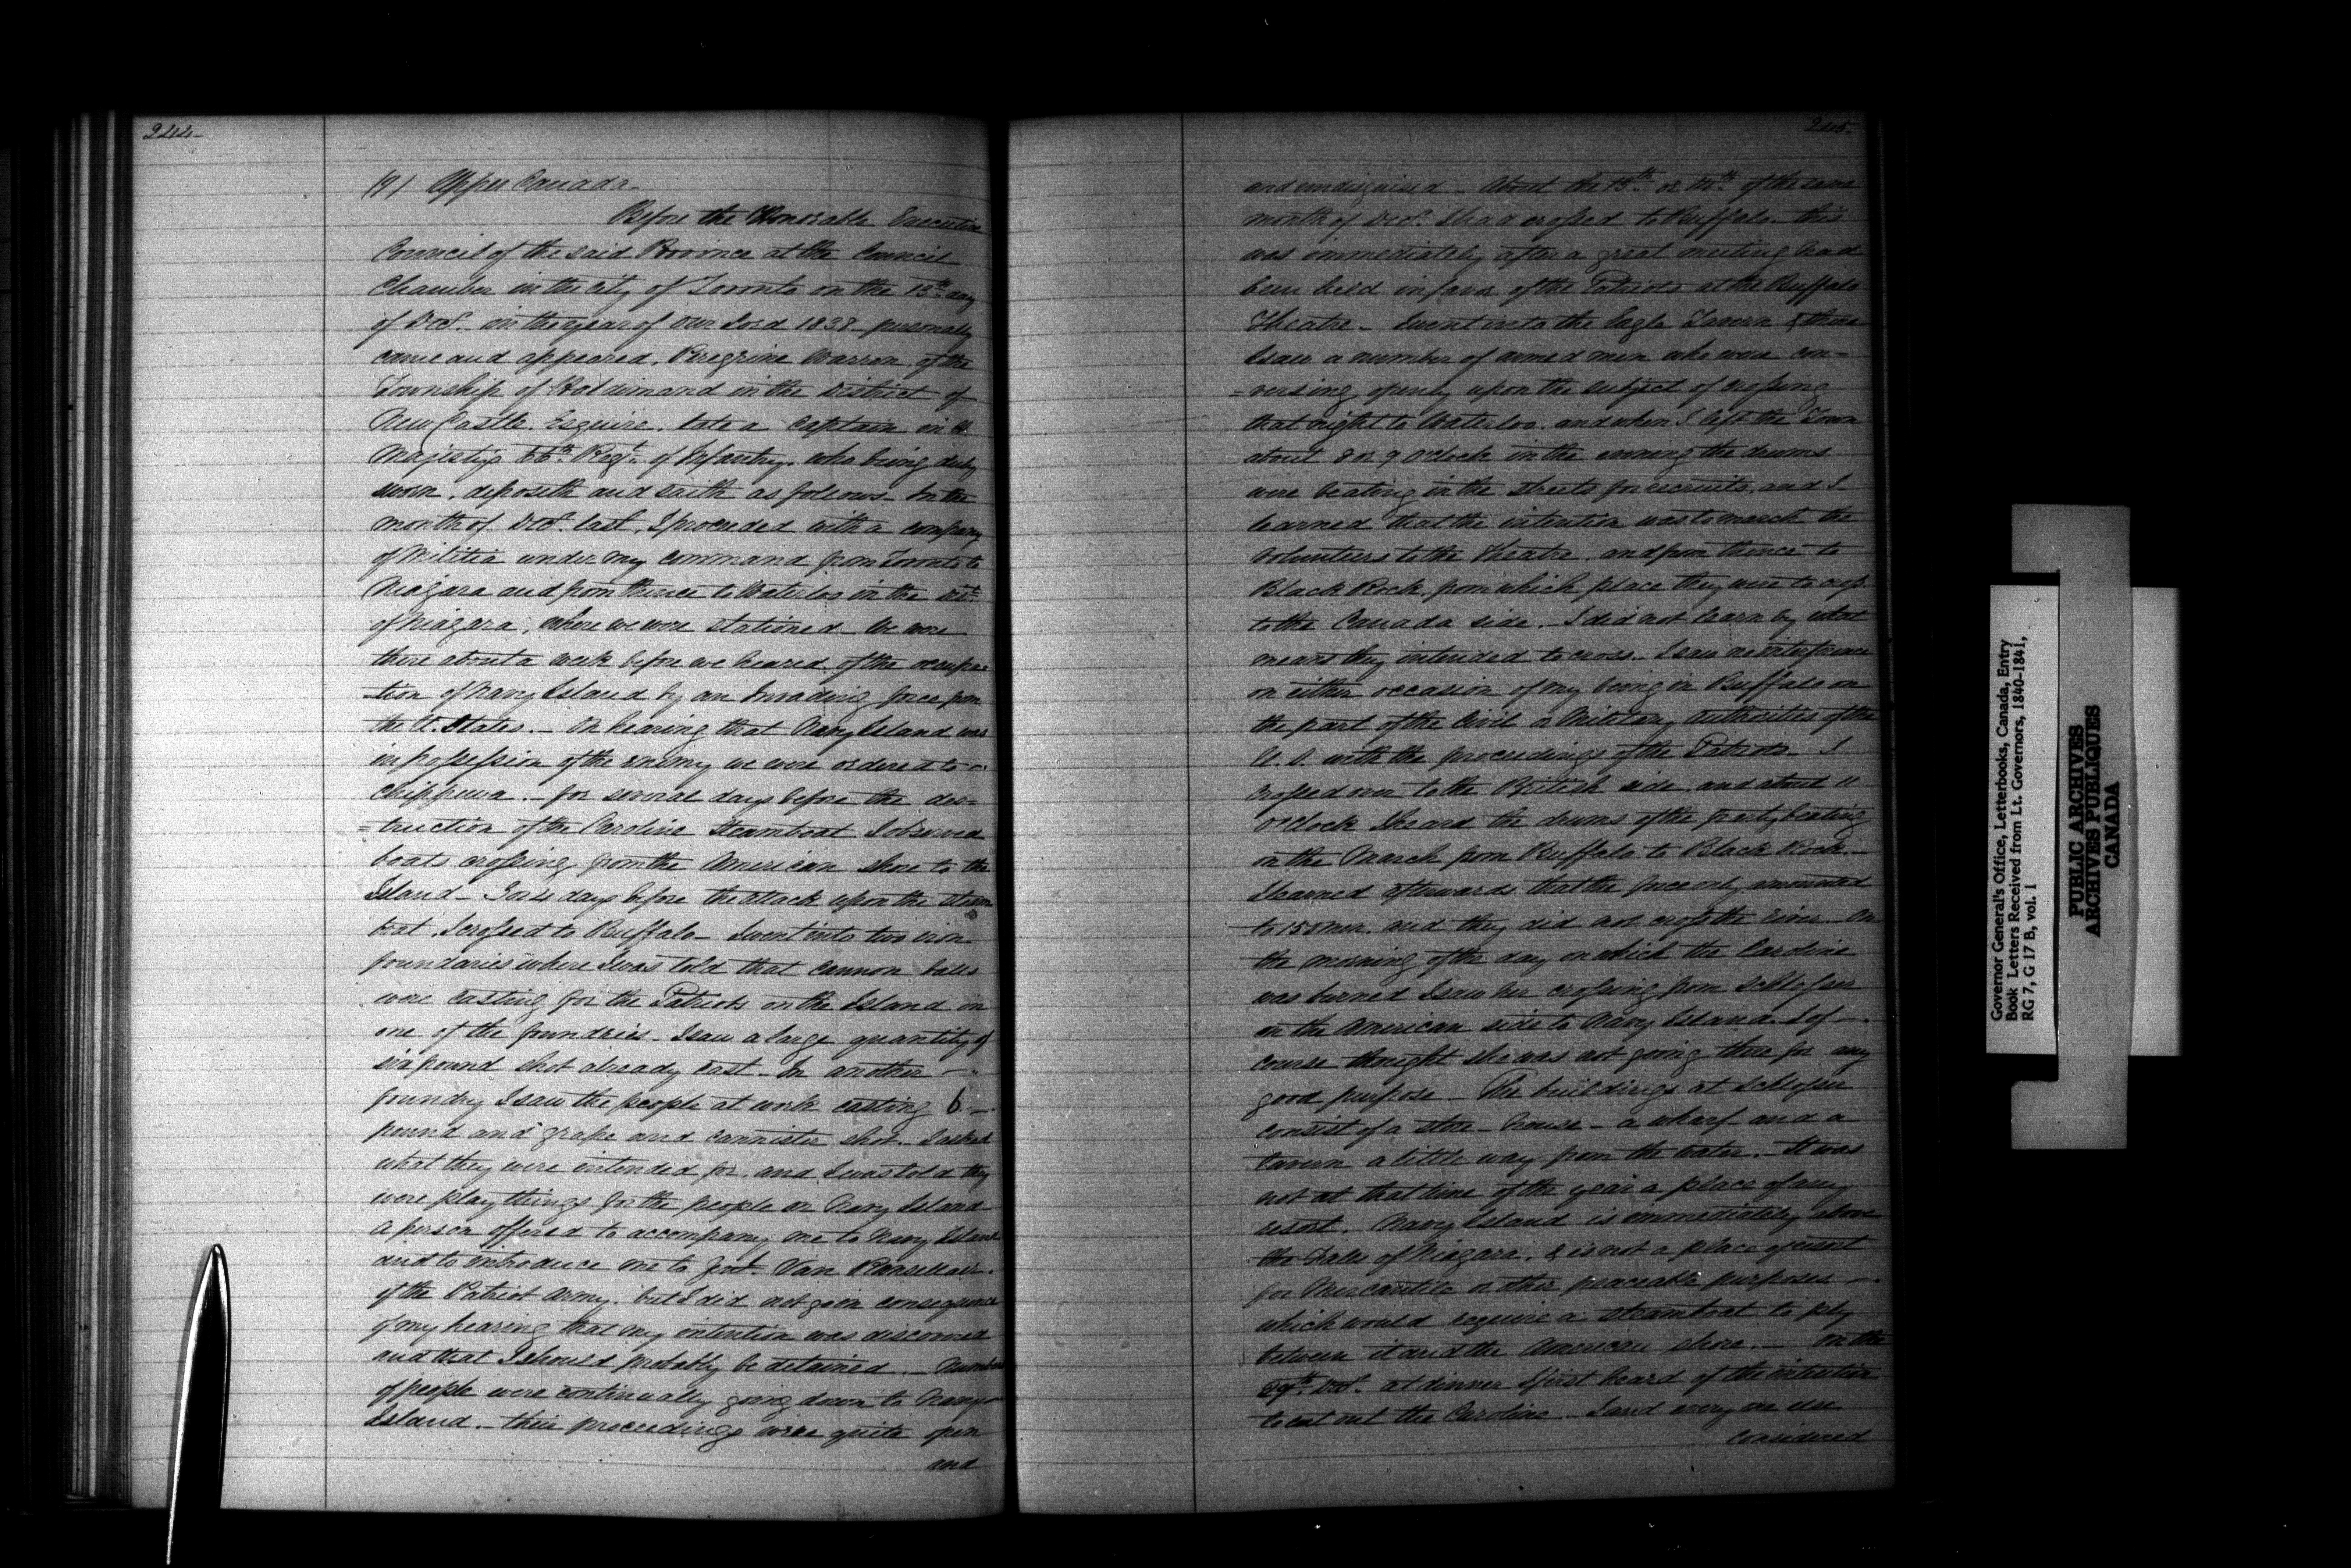 244
(9) Upper Canada.
Before the Honorable Executive
Council of the said Province at the Council
Chamber in the City of Toronto on the 13th day
of Decr. in the year of Our Lord 1838 personally
came and appeared, Peregrine Warren of the
Township of Haldimand in the District of
New Castle. Esquire. late a Captain in H.
Majesty's 66th Regt. of Infantry. who being duly
sworn. deposeth and saith as follows. In the
month of Decr. last, I proceeded with a company
of Militia under my command from Toronto to
Niagara and from thence to Waterloo in the Dist.
of Niagara, where we were stationed We were
there about a week before we heared of the occupa=
-tion of Navy Island by an Invading force from
the U. States. — On hearing that Navy Island was
in possession of the enemy we were ordered to
Chippewa. — for several days before the des=
=truction of the Caroline Steamboat I observed
boats crossing from the American shore to the
Island — 3 or 4 days before the attack upon the steam
boat, I crossed to Buffalo — I went into two iron
foundaries where I was told that cannon balls
were casting for the Patriots on the Island in
one of the foundries. I saw a large quantity of
six pound shot already cast. In another —
foundry I saw the people at work casting 6 —
pound and grape and cannister shot. I asked
what they were intended for. and I was told they
were play things for the people on Navy Island
a person offered to accompany me to Navy Island
and to introduce me to Genl. Van Ranselaer.
of the Patriot Army. but I did not go in consequence
of my hearing that my intention was discovered
and that I should probably be detained. — Numbers
of people were continually going down to Navy
Island. their proceedings were quite open
and
245.
and undisguised — About the 13th or 14th of the same
month of Decr. I had crossed to Buffalo. this
was immediately after a great meeting had
been held in favor of the Patriots at the Buffalo
Theatre — I went into the Eagle Tavern & there
I saw a number of armed men who were con=
=versing openly upon the subject of crossing
that night to Waterloo. and when I left the Town
about 8 or 9 O'clock in the evening the drums
were beating in the streets for recruits, and I
learned that the intention was to march the
volunteers to the Theatre. and from thence to
Black Rock, from which place they were to cross
to the Canada side. — I did not learn by what
means they intended to cross. — I saw no interference
on either occasion of my being in Buffalo on
the part of the Civil or Military authorities of the
U. S. with the proceedings of the Patriots. I
crossed over to the British side. and about 11
o'clock I heard the drums of the party beating
on the March from Buffalo to Black Rock. —
I learned afterwards that the force only amounted
to 150 men. and they did not cross the river. On
the morning of the day on which the Caroline
was burned I saw her crossing from Schlosser
on the American side to Navy Island. I of —
course thought she was not going there for any
good purpose — The buildings at Schlosser
consist of a store-house — a wharf and a
tavern a little way from the water. — It was
not at that time of the year a place of any
resort. Navy Island is immediately above
the Falls of Niagara. & is not a place of resort
for Mercantile or other peaceable purposes —
which would require a steamboat to ply
between it and the American shore. — On the
29th Decr. at dinner I first heard of the intention
to cut out the Caroline — I and every one else
considered
Governor General's Office, Letterbooks, Canada, Entry
Book Letters Received from Lt. Governors, 1840-1841,
RG 7, G 17 B, vol. 1
PUBLIC ARCHIVES
ARCHIVES PUBLIQUES
CANADA